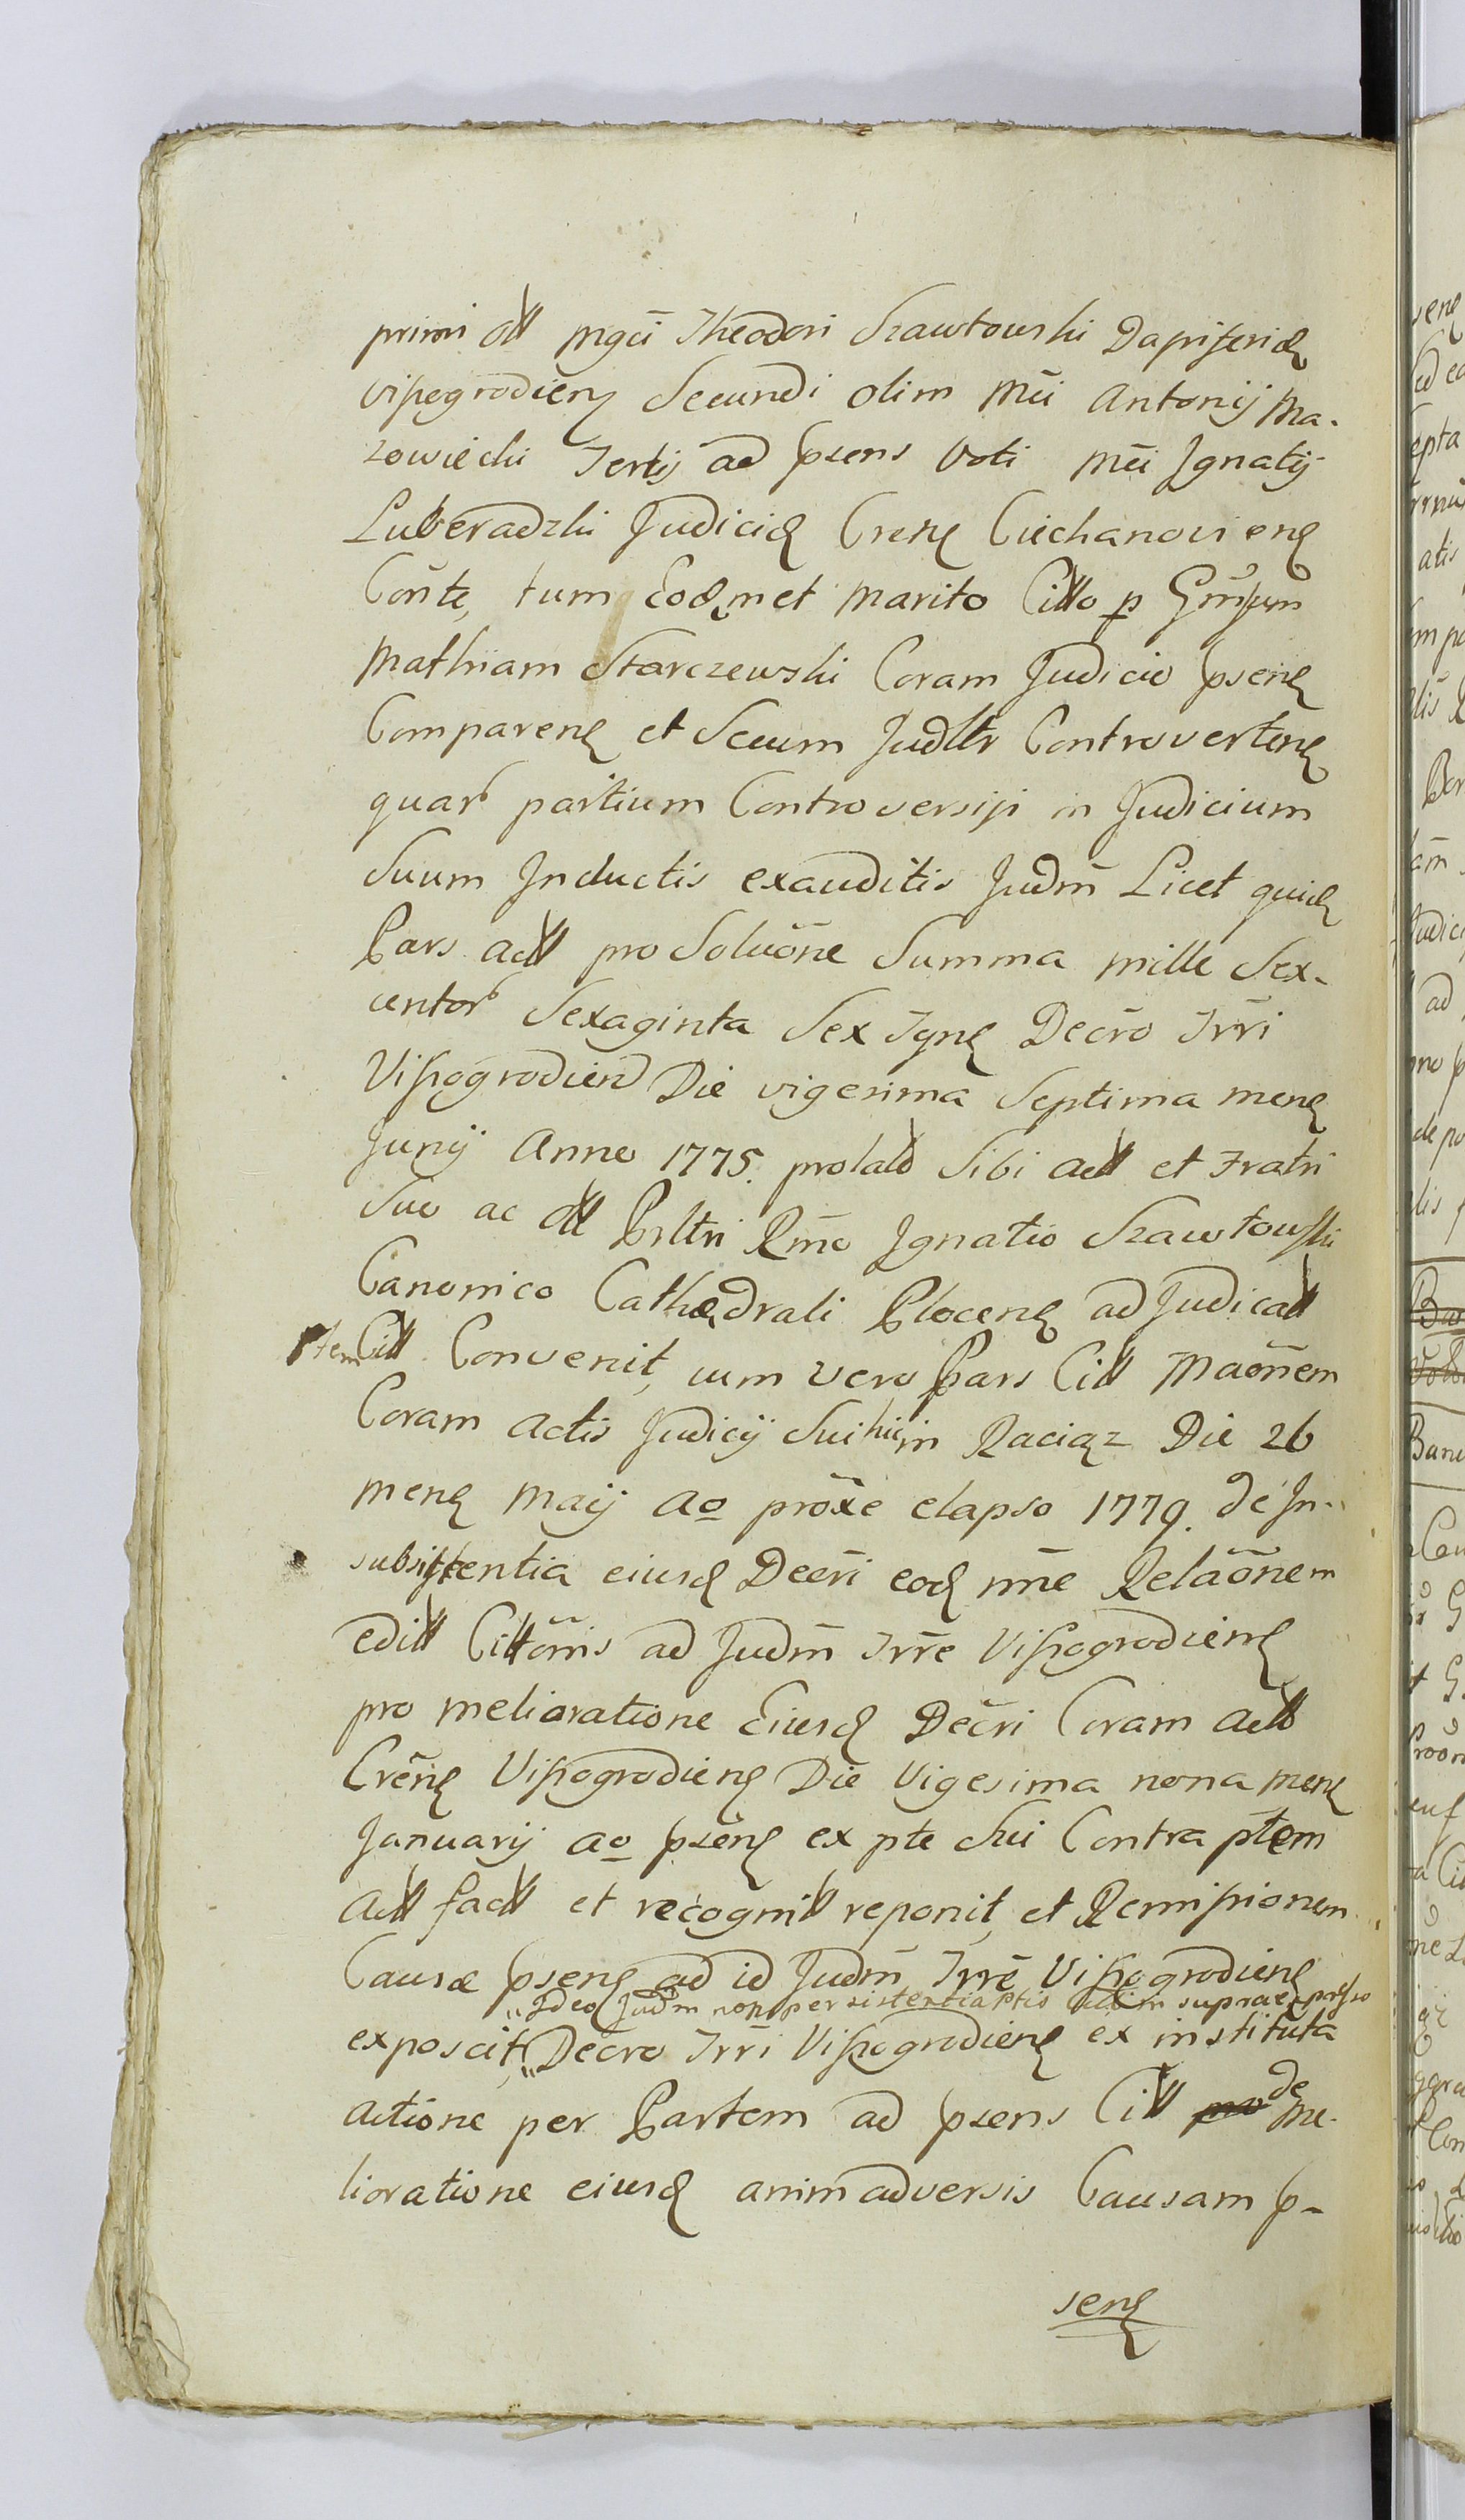 primi oll mgci Theodori Szawłowski Dapiferid
vissegrodien Secundi olim Mci Antonij Ma-
zowiecki Tertij ad psens Voti Mci Ignatij
Luberadzki Judicid Crens Ciechanoviens
Conte, tum Eodmet Marito Citto p Gnsum
Mathiam Starczewski Coram Judicio psens
Comparens et Secum Judltr Controvertens
quar partium Controversiji in Judicium
Suum Inductis exauditis Judm Licet quid
Pars actt pro Soluone Summa mille Sex-
centor Sexaginta Sex Tyns Decro Trri
Vissogrodien Die vigesima Septima mens
Junij Anno 1775. prolato Sibi actt et Fratri
Suo ac oll Psltri Rmo Ignatio Szawłowski
Canonico Cathedrali Plocens adJudicatt
Ptem Citt Convenit, cum vero Pars Citt Maonem
Coram Actis Judicij Sui hic in Raciąz Die 26
mens Maij Ao proxe elapso 1779. de In-
subsistentia eiusd Decri eod nne Relaonem
editt Cittonis ad Judm Trre Vissogrodiens
pro melioratione Eiusd Decri Coram Actt
Crens Vissogrodiens Die Vigesima nona mens
Januarij ao psens ex pte Sui Contra ptem
Actt factt et recognitt reponit, et Remissionem
Causæ psens ad id Judm Trre Vissogrodiens
„Ideo Judm non per sistentia ptis supraexpresso
exposcit, „Decro Trri Vissogrodiens ex instituta
Actione per Partem ad psens Citt de Me-
lioratione eiusd animadversis Causam p-
sens